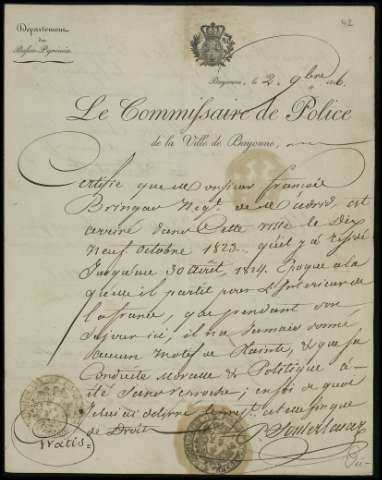 42
Département
des
Basses-Pyrénées
Bayonne, le 2. 9bre
Le Commissaire de Police
de la Ville de Bayonne,
Certifie que Monsieur français
Bringas Negt. de Madrid, est
arrivé dans cette ville le Dix
Neuf octobre 1823. qu'il y a résidé
Jusqu'au 30 avril 1824. Epoque a la
quelle il partit pour l'Interieur de
la france, que pendant son
sejour ici, il n'a Jamais donné
aucun Motif de Plainte, & que sa
Conduite Morale & Politique à
été sans reproche; en foi de quoi
de Droit
Gratis